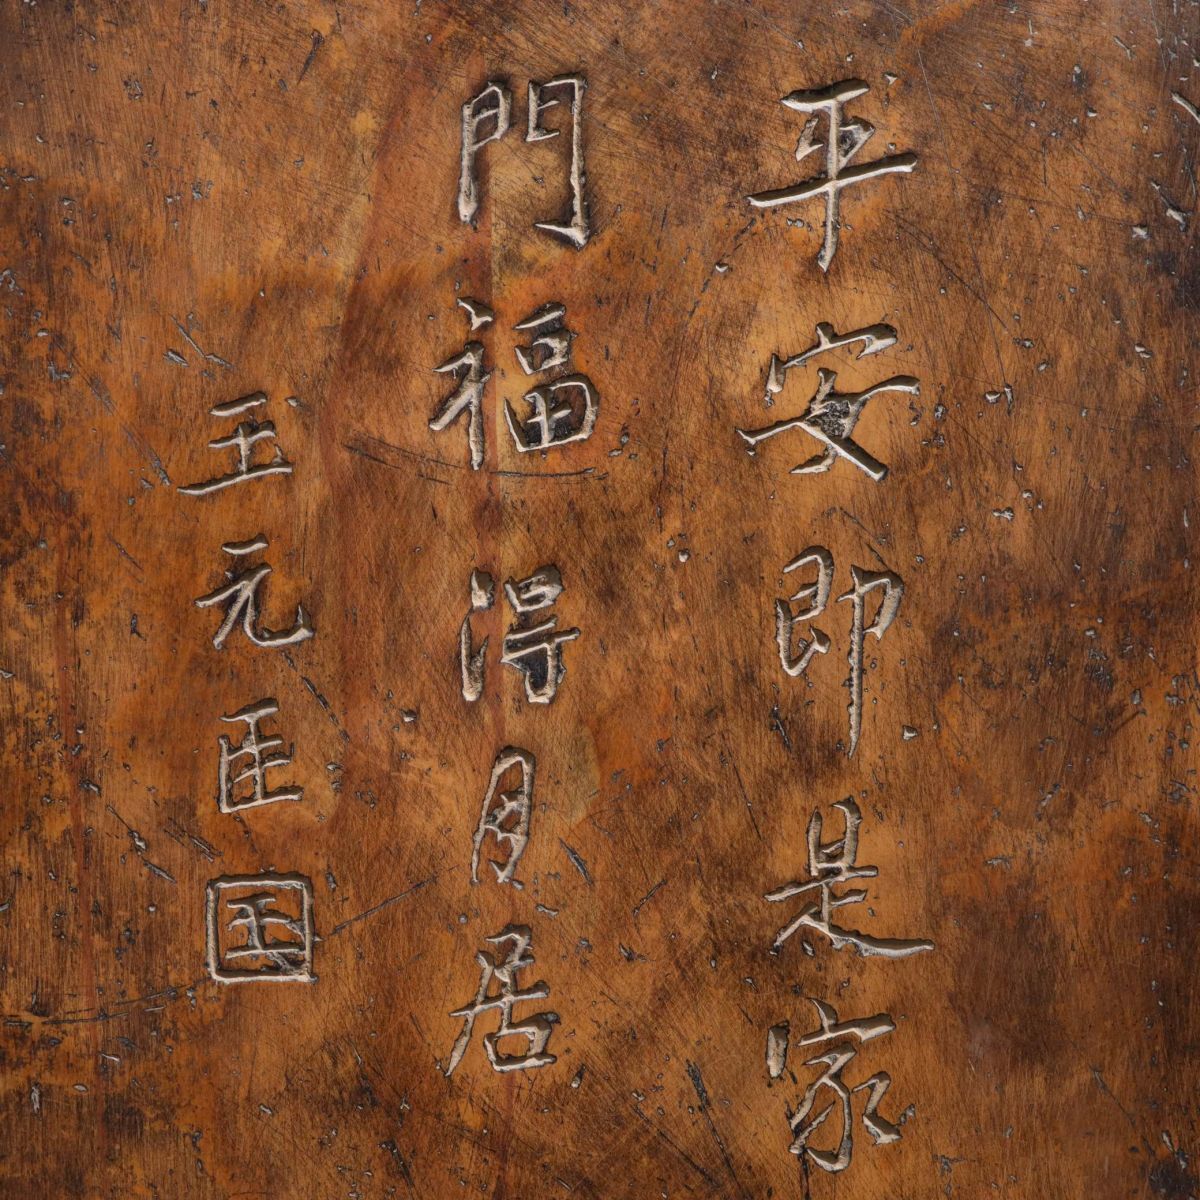 平安即是家
門福得月居
王元匡国